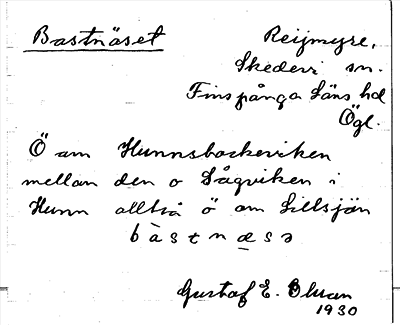 Bastnäset
Reijmyre,
Skedevi sn.
Finspånga Läns hd
Ögl.
Ö am Hunnsbackeviken
mellan den o Sågviken i
Hunn alltså ö am Lillsjön
bàstnæsə
Gustaf E. Olsson
1930